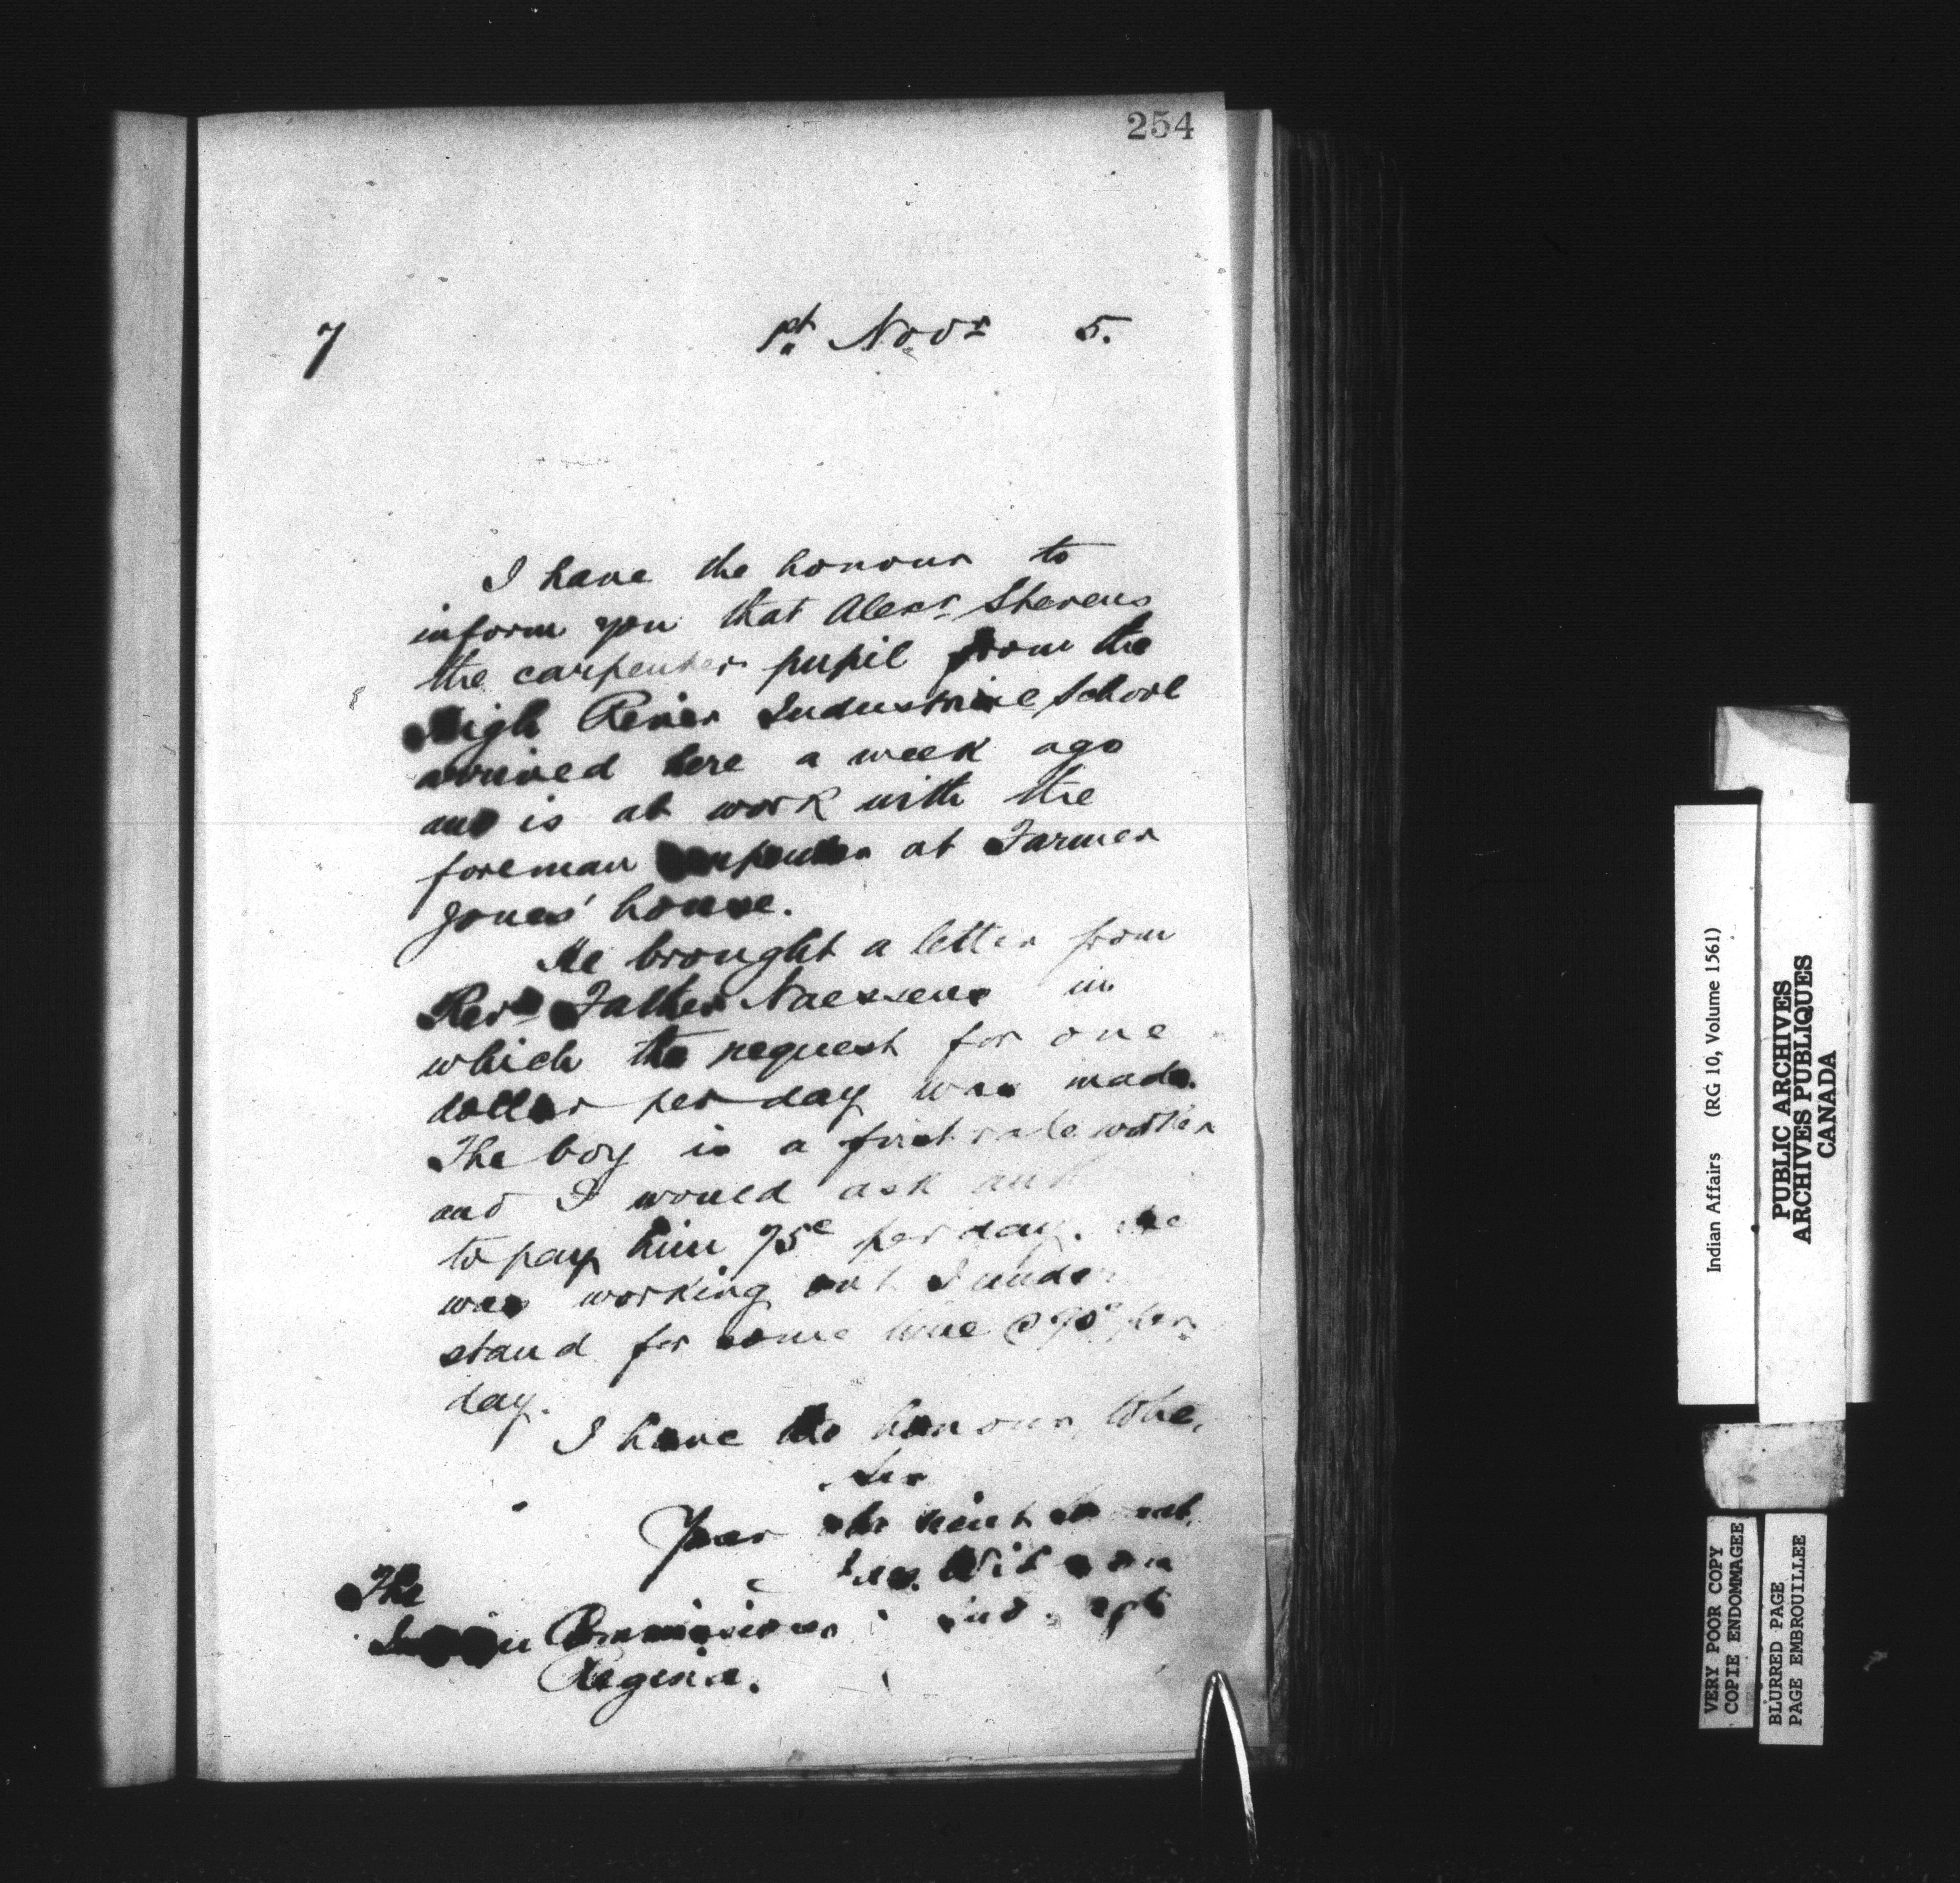 254
7 1st Novr 5.
I have the honour to
inform you that Alexr Stevens
the carpenter pupil from the
High River Industrial School
arrived here a week ago
and is at work with the
foreman carpenter at Farmer
Jones' house.
He brought a letter from
Revd Father Naessens in
which the request for one
dollar per day was made.
The boy is a first rate worker
and I would ask
to pay him 75c per day. He
was working out I under
stand for some time @ 90c per
day.
I have the honour to be,
Sir
Your obedient servt
Jas. Wilson
Ind. Agt
The
Indian Commissioner
Regina.
Indian Affairs (RG 10, Volume 1561)
PUBLIC ARCHIVES
ARCHIVES PUBLIQUES
CANADA
VERY POOR COPY
COPIE ENDOMMAGEE
BLURRED PAGE
PAGE EMBROUILLEE